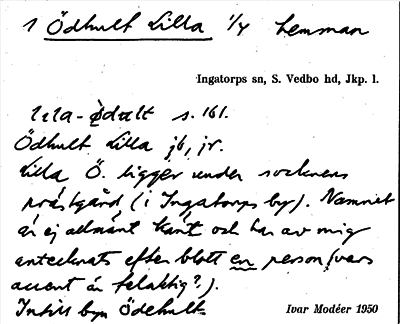 1 Ödhult Lilla 1/4 hemman
Ingatorps sn, S. Vedbo hd, Jkp. l.
s. 161.
Ödhult Lilla jb, jr.
Lilla Ö. ligger under socknens
prästgård (i Ingatorps by). Namnet
är ej allmänt känt och har av mig
antecknats efter blott en person (vars
accent är felaktig?).
Intill byn Ödehult
Ivar Modéer 1950